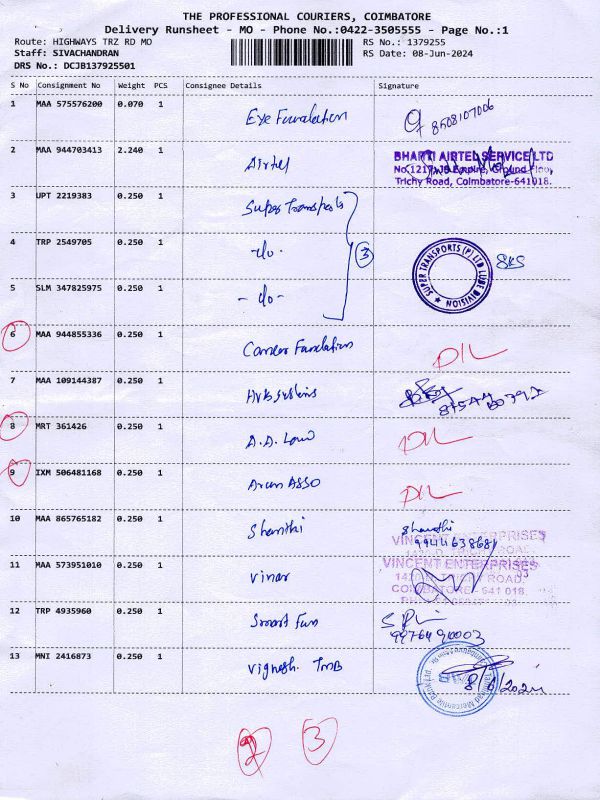 THE PROFESSIONAL COURIERS, COIMBATORE
Delivery Runsheet - MO - Phone No.:0422-3505555 - Page No.:1
Route: HIGHWAYS TRZ RD MO
RS No.: 1379255
Staff: SIVACHANDRAN
RS Date: 08-Jun-2024
DRS No.: DCJB137925501
S No Consignment No Weight PCS Consignee Details Signature
1 MAA 575576200 0.070 1 Eye Foundation 8508107006
2 MAA 944703413 2.240 1 Airtel
BHARTI AIRTEL SERVICE LTD
No.1217, JB Empire, Ground Floor,
Trichy Road, Coimbatore-641018.
3 UPT 2219383 0.250 1 Super Transports
4 TRP 2549705 0.250 1 -do- 3
SUPER TRANSPORTS (P) LTD LUBE DIVISION
SKS
5 SLM 347825975 0.250 1 -do-
6 MAA 944855336 0.250 1 Cancer Foundation DIL
7 MAA 109144387 0.250 1
8 MRT 361426 0.250 1 A.A. Law DIL
9 IXM 506481168 0.250 1 Arun ASSO DIL
10 MAA 865765182 0.250 1 Shanthi Shanthi
9944638681
VINCENT ENTERPRISES
11 MAA 573951010 0.250 1 Vinar
VINCENT ENTERPRISES
TRICHY ROAD
COIMBATORE - 641 018
12 TRP 4935960 0.250 1 Smart Fun
9976490003
13 MNI 2416873 0.250 1 Vignesh TMB
8/6/2024
2 3